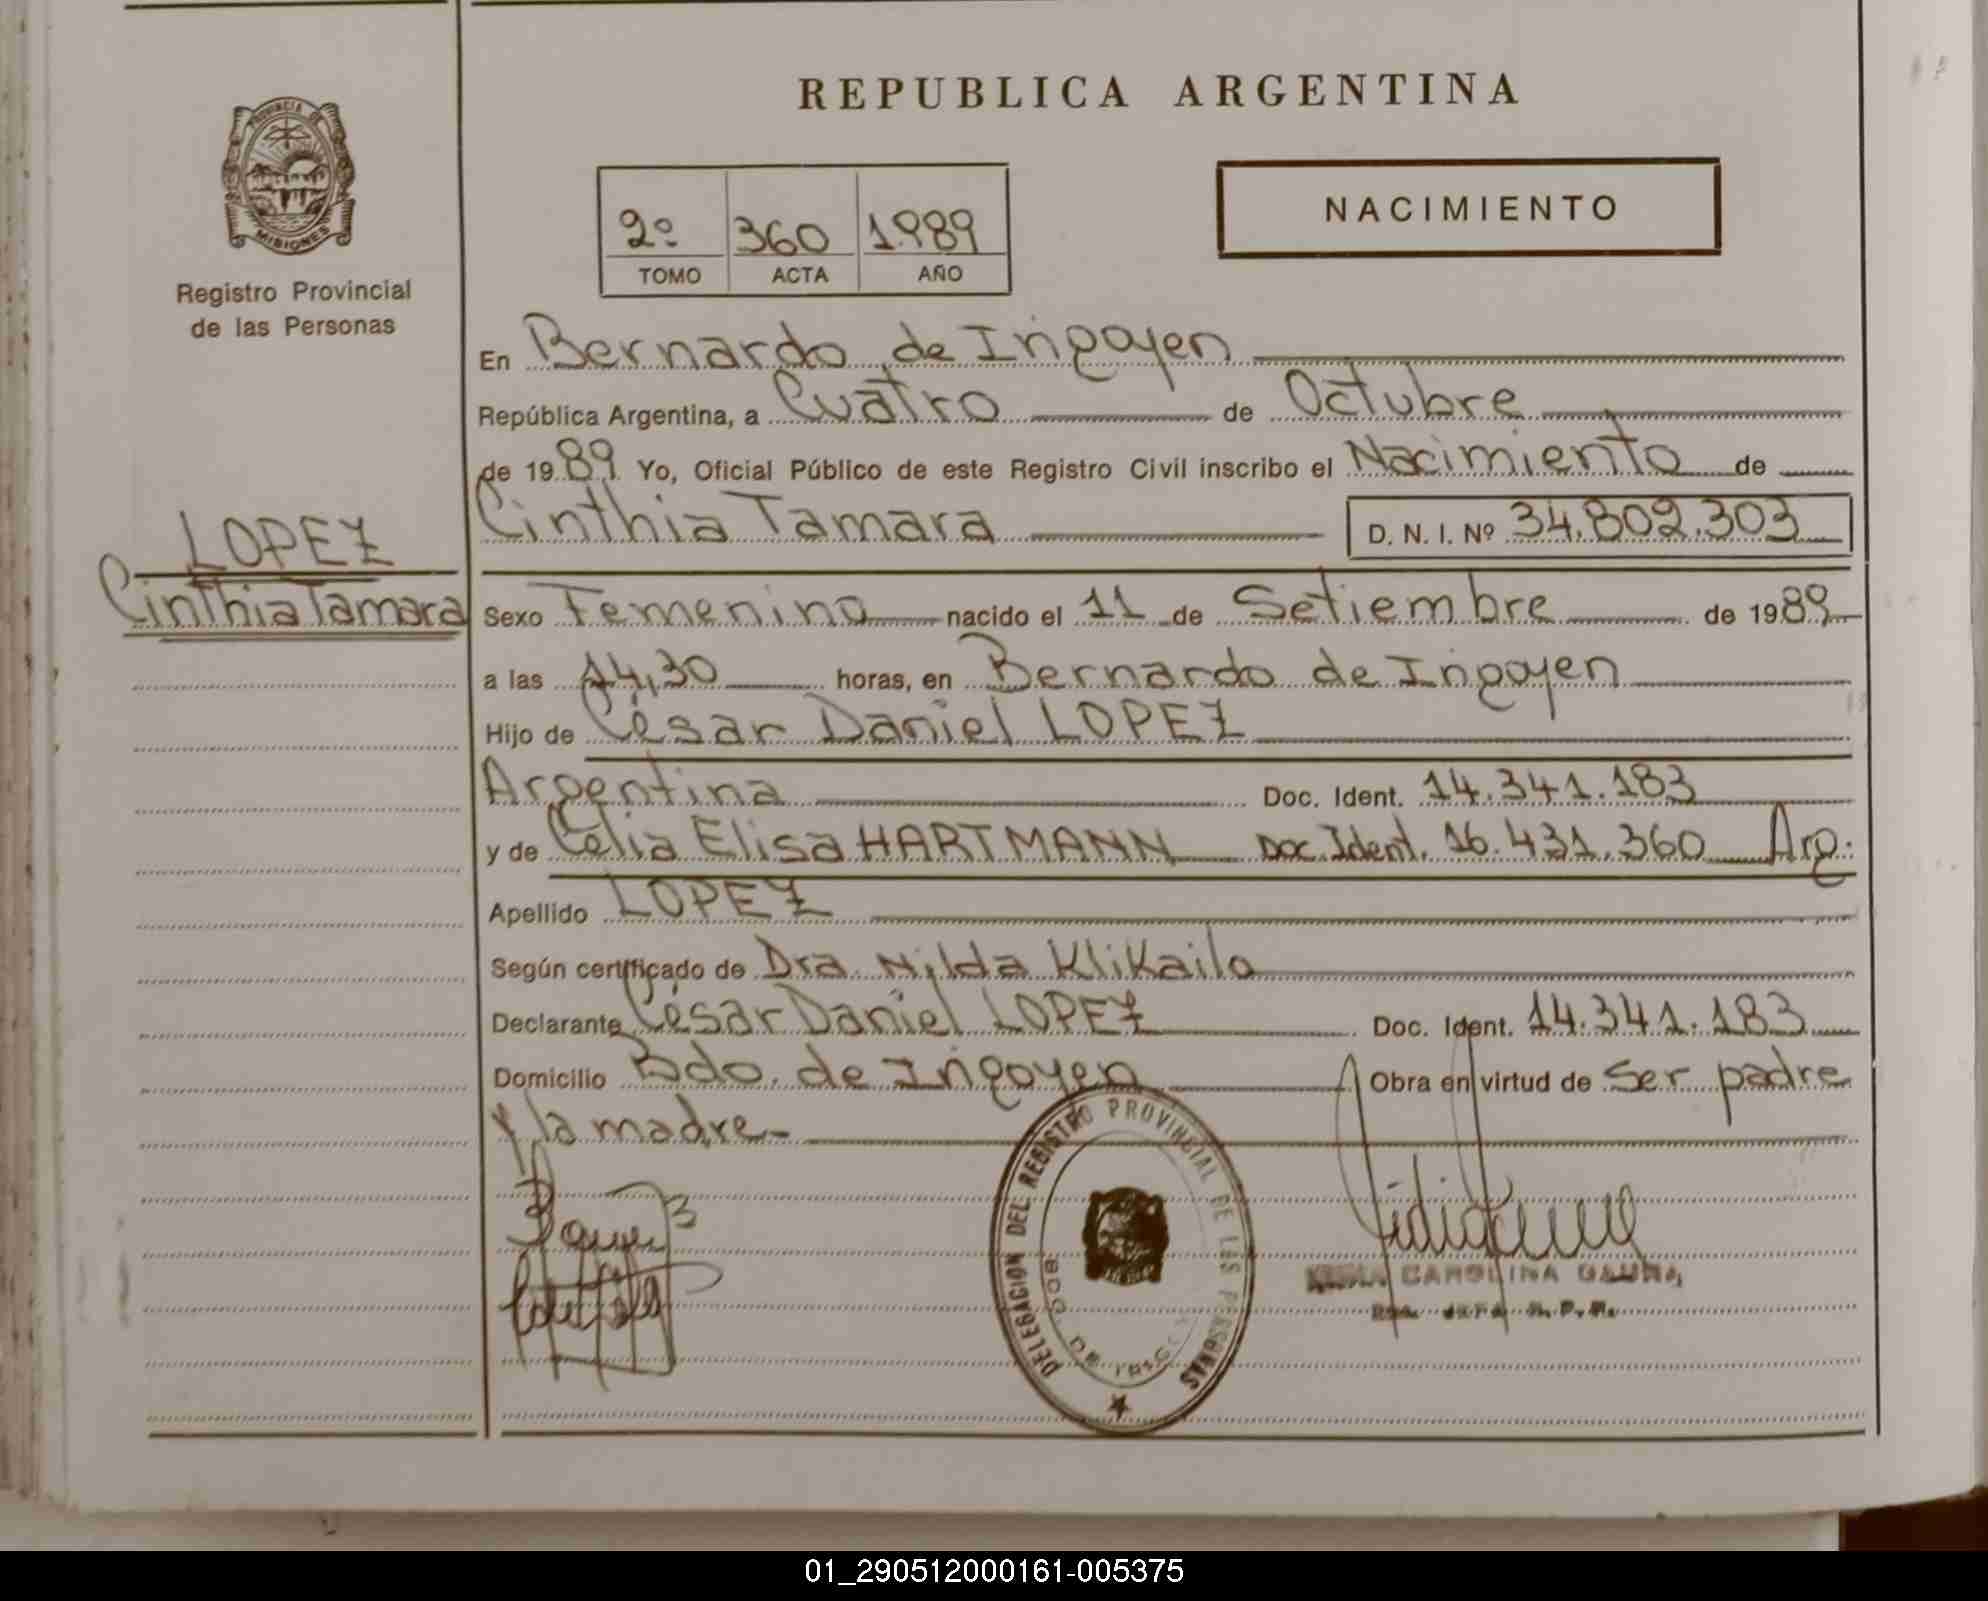 REPUBLICA ARGENTINA
PROVINCIA DE
MISIONES
Registro Provincial
de las Personas
2º 360 1989
TOMO ACTA AÑO
NACIMIENTO
En Bernardo de Irigoyen
República Argentina, a Cuatro de Octubre
de 1989 Yo, Oficial Público de este Registro Civil inscribo el Nacimiento de
Cinthia Tamara D. N. I. Nº 34.802.303
LOPEZ
Cinthia Tamara
Sexo Femenino nacido el 11 de Setiembre de 1989
a las 14,30 horas, en Bernardo de Irigoyen
Hijo de César Daniel LOPEZ
Argentina Doc. Ident. 14.341.183
y de Celia Elisa HARTMANN Doc. Ident. 16.431.360 Arg.
Apellido LOPEZ
Según certificado de Dra. Nilda Klikailo
Declarante César Daniel LOPEZ Doc. Ident. 14.341.183
Domicilio Bdo. de Irigoyen Obra en virtud de Ser padre
y la madre.-
DELEGACION DEL REGISTRO PROVINCIAL DE LAS PERSONAS
BDO. DE
CAROLINA
JEFA R. P. P.
01_290512000161-005375